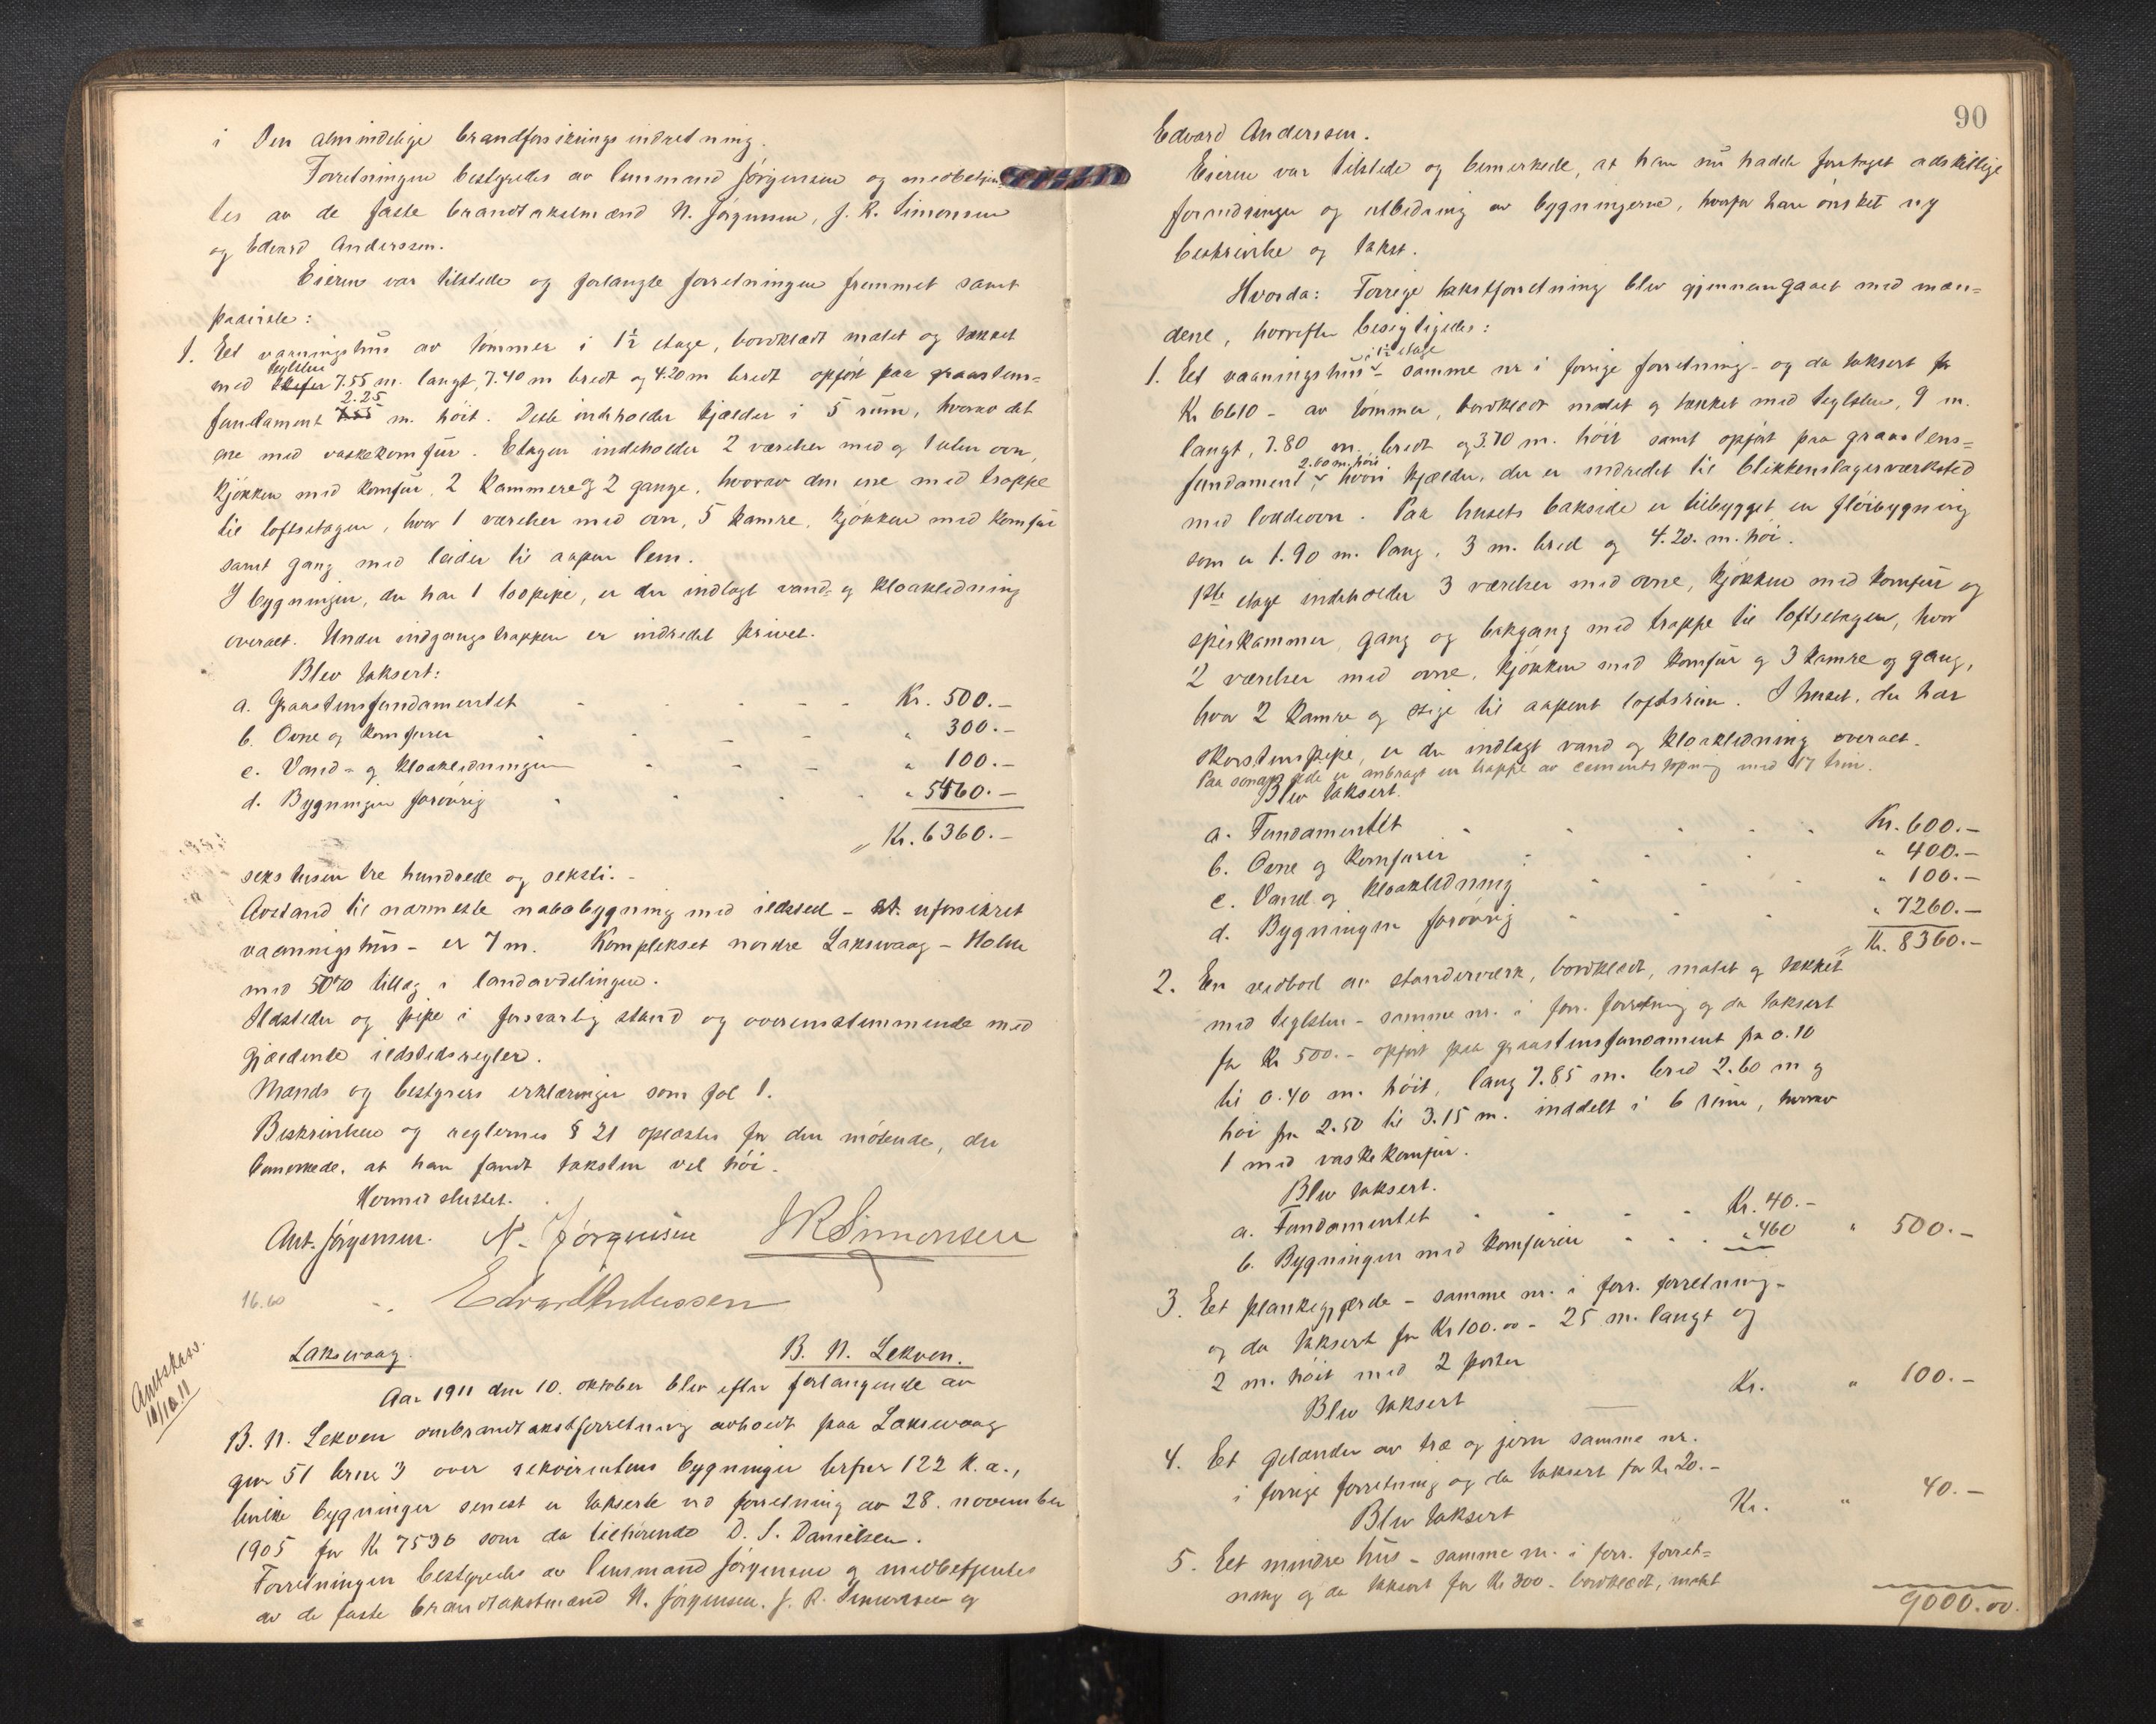 i Den almindelige brandforsikringsindretning.
Forretningen bestyredes av lensmand Jørgensen og medbetjen
tes av de faste brandtakstmænd N. Jørgensen, J. R. Simonsen
og Edvard Anderssen.
Eieren var tilstede og forlangte forretningen fremmet samt
paaviste:
1. Eet vaaningshus av tømmer i 1½ etage, bordklædt malet og tækket
teglsten
med skifer 7.55 m. langt, 7.40 m bredt og 4.20 m bredt opført paa graastens-
2.25
fundament 7.55 m. høit. Dette indeholder kjælder i 5 rum, hvorav det
ene med vaskekomfur. Etagen indeholder 2 værelser med og 1 uten ovn,
kjøkken med komfur, 2 kammere og 2 gange, hvorav den ene med trappe
til loftsetagen, hvor 1 værelser med ovn, 5 kamre, kjøkken med komfur
samt gang med leider til aapen lem.
I bygningen, der har 1 pipe, er der indlagt vand- og kloakledning
overalt. Under indgangstrappen er indredet privet.
Blev taksert:
a. Graastensfundamentet Kr. 500.-
b. Ovne og komfurer " 300.-
c. Vand- og kloakledningen " 100.-
d. Bygningen forøvrig " 5460.-
Kr. 6360.-
seks tusen tre hundrede og seksti.-
Avstand til nærmeste nabobygning med ildsted - et uforsikret
vaaningshus - er 7 m. Komplekset nordre Laksevaag - Holen
med 50% tillæg i landavdelingen.
Ildsteder og pipe i forsvarlig stand og overensstemmende med
gjældende ildstedsregler.
Mænds og bestyrers erklæringer som fol 1.
Beskrivelsen og reglernes § 21 oplæstes for den møtende, der
bemerkede, at han fandt taksten vel høi.
Hermed sluttet.
Ant. Jørgensen. N. Jørgensen J R Simonsen
16.60 Edvard Anderssen
Laksevaag. B. N. Lekven.
Amtskass.
10/10.11
Aar 1911 den 10. oktober blev efter forlangende av
B. N. Lekven ombrandtakstforretning avholdt paa Laksevaag
gnr 51 brnr 3 over rekvirentens bygninger brfnr 122 K.a.,
hvilke bygninger senest er takserte ved forretning av 28. november
1905 for Kr 7530 som da tilhørende D. S. Danielsen.
Forretningen bestyredes av lensmand Jørgensen og medbetjentes
av de faste brandtakstmænd N. Jørgensen, J. R. Simonsen og
90
Edvard Anderssen.
Eieren var tilstede og bemerkede, at han nu hadde foretaget adskillige
forandringer og utbedring av bygningerne, hvorfor han ønsket ny
beskrivelse og takst.
Hvorda: Forrige takstforretning blev gjennemgaaet med mæn-
dene, hvorefter besigtigedes:
i 1½ etage
1. Eet vaaningshus - samme nr i forrige forretning - og da taksert for
Kr 6610 - av tømmer, bordklædt malet og tækket med teglsten, 9 m.
langt, 7.80 m. bredt og 3.70 m. høit samt opført paa graastens-
2.60 m. høit
fundament, hvori kjælder, der er indredet til blikkenslagerværksted
med loddeovn. Paa husets bakside er tilbygget en fløibygning
som er 1.90 m. lang, 3 m. bred og 4.20. m. høi.
1ste etage indeholder 3 værelser med ovne, kjøkken med komfur og
spiskammer, gang og bakgang med trappe til loftsetagen, hvor
2 værelser med ovne, kjøkken med komfur og 3 kamre og gang,
hvor 2 kamre og stige til aapent loftsrum. I huset, der har
skorstenspipe, er der indlagt vand og kloakledning overalt.
Paa side er anbragt en trappe av cementstøpning med 17 trin.
Blev taksert.
a. Fundamentet Kr. 600.-
b. Ovne og komfurer " 400.-
c. Vand og kloakledning " 100.-
d. Bygningen forøvrig " 7260.-
Kr. 8360.-
2. En vedbod av standerværk, bordklædt, malet og tækket
med teglsten - samme nr. i forr. forretning og da taksert
for Kr 500.- opført paa graastensfundament fra 0.10
til 0.40 m. høit, lang 7.85 m. bred 2.60 m og
høi fra 2.50 til 3.15 m. inddelt i 6 rum, hvorav
1 med vaskekomfur.
Blev taksert.
a. Fundamentet Kr. 40.-
b. Bygningen med komfuren " 460 " 500.-
3. Eet plankegjærde - samme nr. i forr. forretning -
og da taksert for Kr 100.00 - 25 m. langt og
2 m. høit med 2 porter
Blev taksert Kr. " 100.-
4. Et gelænder av træ og jern samme nr.
i forrige forretning og da taksert for Kr 20.-
Blev taksert Kr. " 40.-
5. Eet mindre hus - samme nr. i forr. forret-
ning og da taksert for Kr 300 - bordklædt, malet
9000.00.